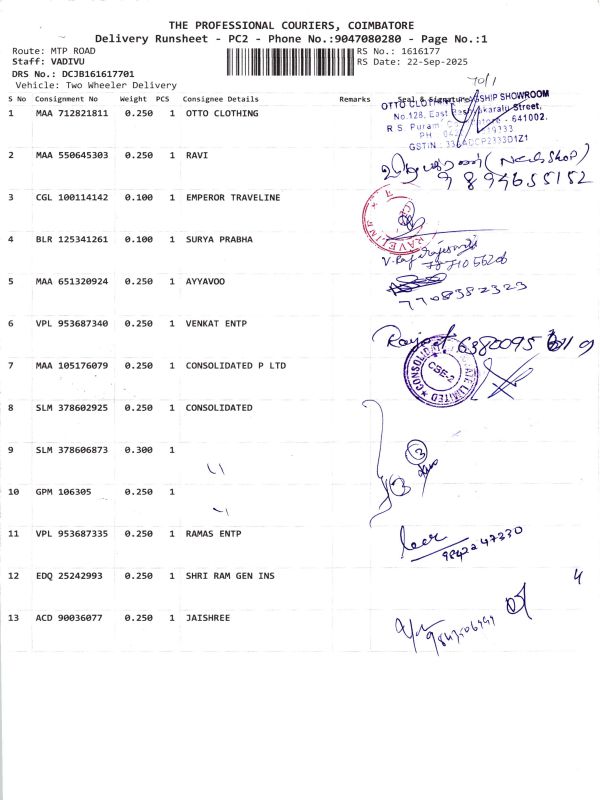 THE PROFESSIONAL COURIERS, COIMBATORE
Delivery Runsheet - PC2 - Phone No.:9047080280 - Page No.:1
Route: MTP ROAD
RS No.: 1616177
Staff: VADIVU
RS Date: 22-Sep-2025
DRS No.: DCJB161617701
Vehicle: Two Wheeler Delivery
70/1
S No Consignment No Weight PCS Consignee Details Remarks Seal & Signature
1 MAA 712821811 0.250 1 OTTO CLOTHING
OTTO CLOTHING SHIP SHOWROOM
No.128, East Street,
R S Puram - 641002.
PH
GSTIN :
2 MAA 550645303 0.250 1 RAVI
9894655152
3 CGL 100114142 0.100 1 EMPEROR TRAVELINE
TRAVELINE
4 BLR 125341261 0.100 1 SURYA PRABHA
V. Rajarajeswari
5 MAA 651320924 0.250 1 AYYAVOO
7708382323
6 VPL 953687340 0.250 1 VENKAT ENTP
7 MAA 105176079 0.250 1 CONSOLIDATED P LTD
CONSOLIDATED PRIVATE LIMITED
CBE-2
8 SLM 378602925 0.250 1 CONSOLIDATED
9 SLM 378606873 0.300 1
〃
3
10 GPM 106305 0.250 1
〃
11 VPL 953687335 0.250 1 RAMAS ENTP
9842247230
12 EDQ 25242993 0.250 1 SHRI RAM GEN INS
4
13 ACD 90036077 0.250 1 JAISHREE